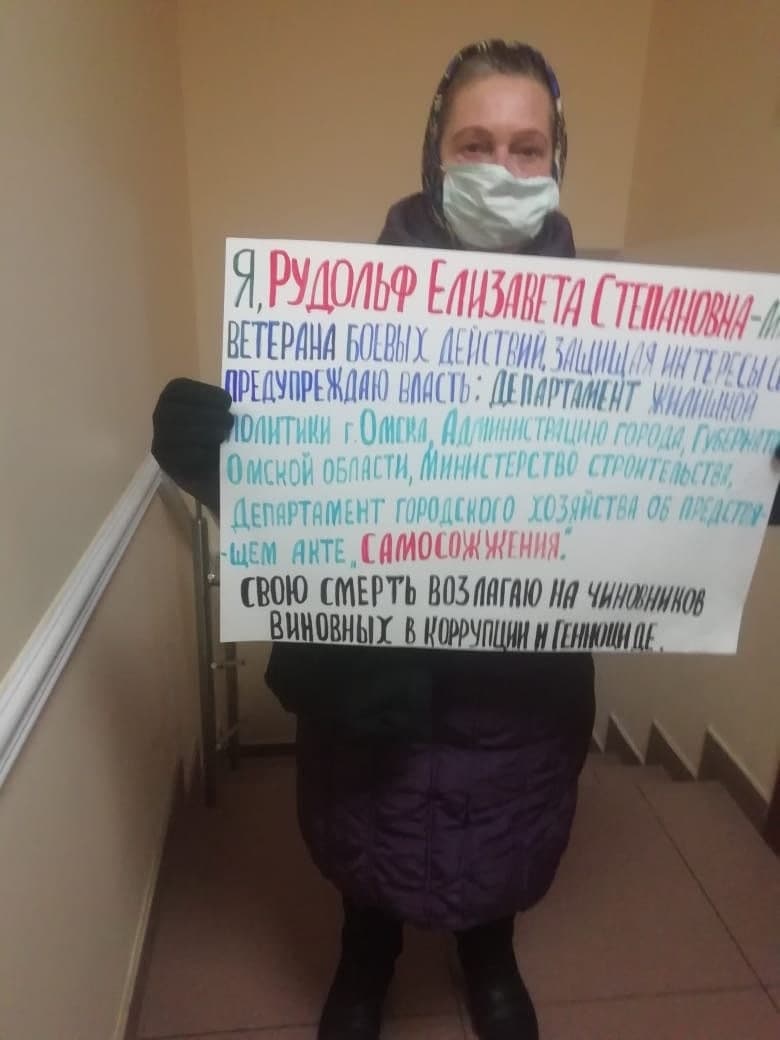 Я, РУДОЛЬФ ЕЛИЗАВЕТА СТЕПАНОВНА-
ВЕТЕРАНА БОЕВЫХ ДЕЙСТВИЙ, ЗАЩИЩАЯ ИНТЕРЕСЫ
ПРЕДУПРЕЖДАЮ ВЛАСТЬ: ДЕПАРТАМЕНТ ЖИЛИЩНОЙ
ПОЛИТИКИ г. ОМСКА, АДМИНИСТРАЦИЮ ГОРОДА,
ОМСКОЙ ОБЛАСТИ, МИНИСТЕРСТВО СТРОИТЕЛЬСТВА,
ДЕПАРТАМЕНТ ГОРОДСКОГО ХОЗЯЙСТВА ОБ ПРЕДСТОЯ-
-ЩЕМ АКТЕ „САМОСОЖЖЕНИЯ".
СВОЮ СМЕРТЬ ВОЗЛАГАЮ НА ЧИНОВНИКОВ
ВИНОВНЫХ В КОРРУПЦИИ И ГЕННОЦИДЕ.